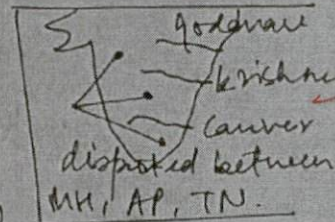 godavari
krishna
cauver
disputed between
MH, AP, TN.